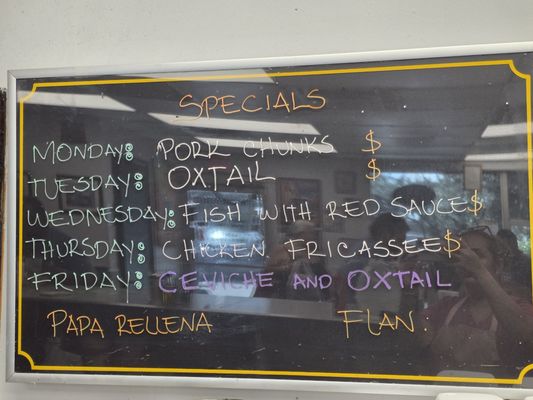 SPECIALS
MONDAY: PORK CHUNKS $
TUESDAY: OXTAIL $
WEDNESDAY: FISH WITH RED SAUCE $
THURSDAY: CHICKEN FRICASSEE $
FRIDAY: CEVICHE AND OXTAIL
PAPA RELLENA FLAN